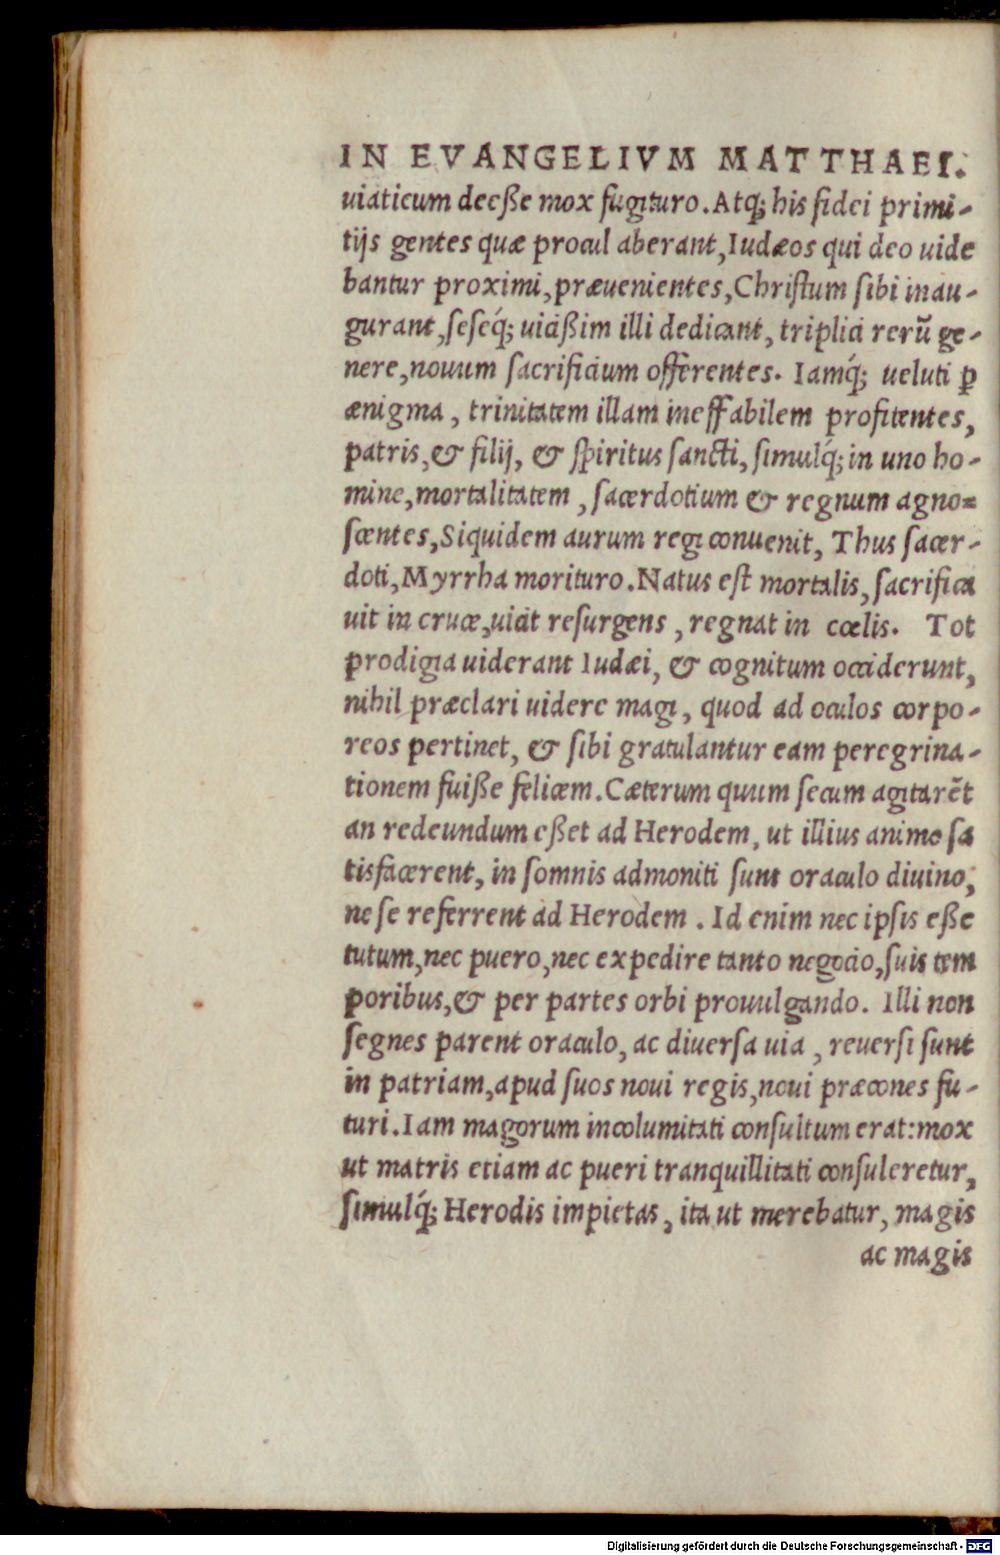 IN EVANGELIVM MATTHAEI.
uiaticum deeſſe mox fugituro. Atq́; his fidei primi-
tijs gentes quæ procul aberant, Iudæos qui deo uide
bantur proximi, præuenientes, Chriſtum ſibi inau-
gurant, ſeſeq́; uiciſſim illi dedicant, triplici rerū ge-
nere, nouum ſacrificium offerentes. Iamq́; ueluti ꝑ
ænigma, trinitatem illam ineffabilem profitentes,
patris, & filij, & ſpiritus ſancti, ſimulq́; in uno ho-
mine, mortalitatem, ſacerdotium & regnum agno-
ſcentes, Siquidem aurum regi conuenit, Thus ſacer-
doti, Myrrha morituro. Natus eſt mortalis, ſacrifica
uit in cruce, uicit reſurgens, regnat in cœlis. Tot
prodigia uiderant Iudæi, & cognitum occiderunt,
nihil præclari uidere magi, quod ad oculos corpo-
reos pertinet, & ſibi gratulantur eam peregrina-
tionem fuiſſe felicem. Cæterum quum ſecum agitarēt
an redeundum eſſet ad Herodem, ut illius animo ſa
tisfacerent, in ſomnis admoniti ſunt oraculo diuino,
ne ſe referrent ad Herodem. Id enim nec ipſis eſſe
tutum, nec puero, nec expedire tanto negocio, ſuis tem
poribus, & per partes orbi prouulgando. Illi non
ſegnes parent oraculo, ac diuerſa uia, reuerſi ſunt
in patriam, apud ſuos noui regis, noui præcones fu-
turi. Iam magorum incolumitati conſultum erat: mox
ut matris etiam ac pueri tranquillitati conſuleretur,
ſimulq́; Herodis impietas, ita ut merebatur, magis
ac magis
Digitalisierung gefördert durch die Deutsche Forschungsgemeinschaft - DFG